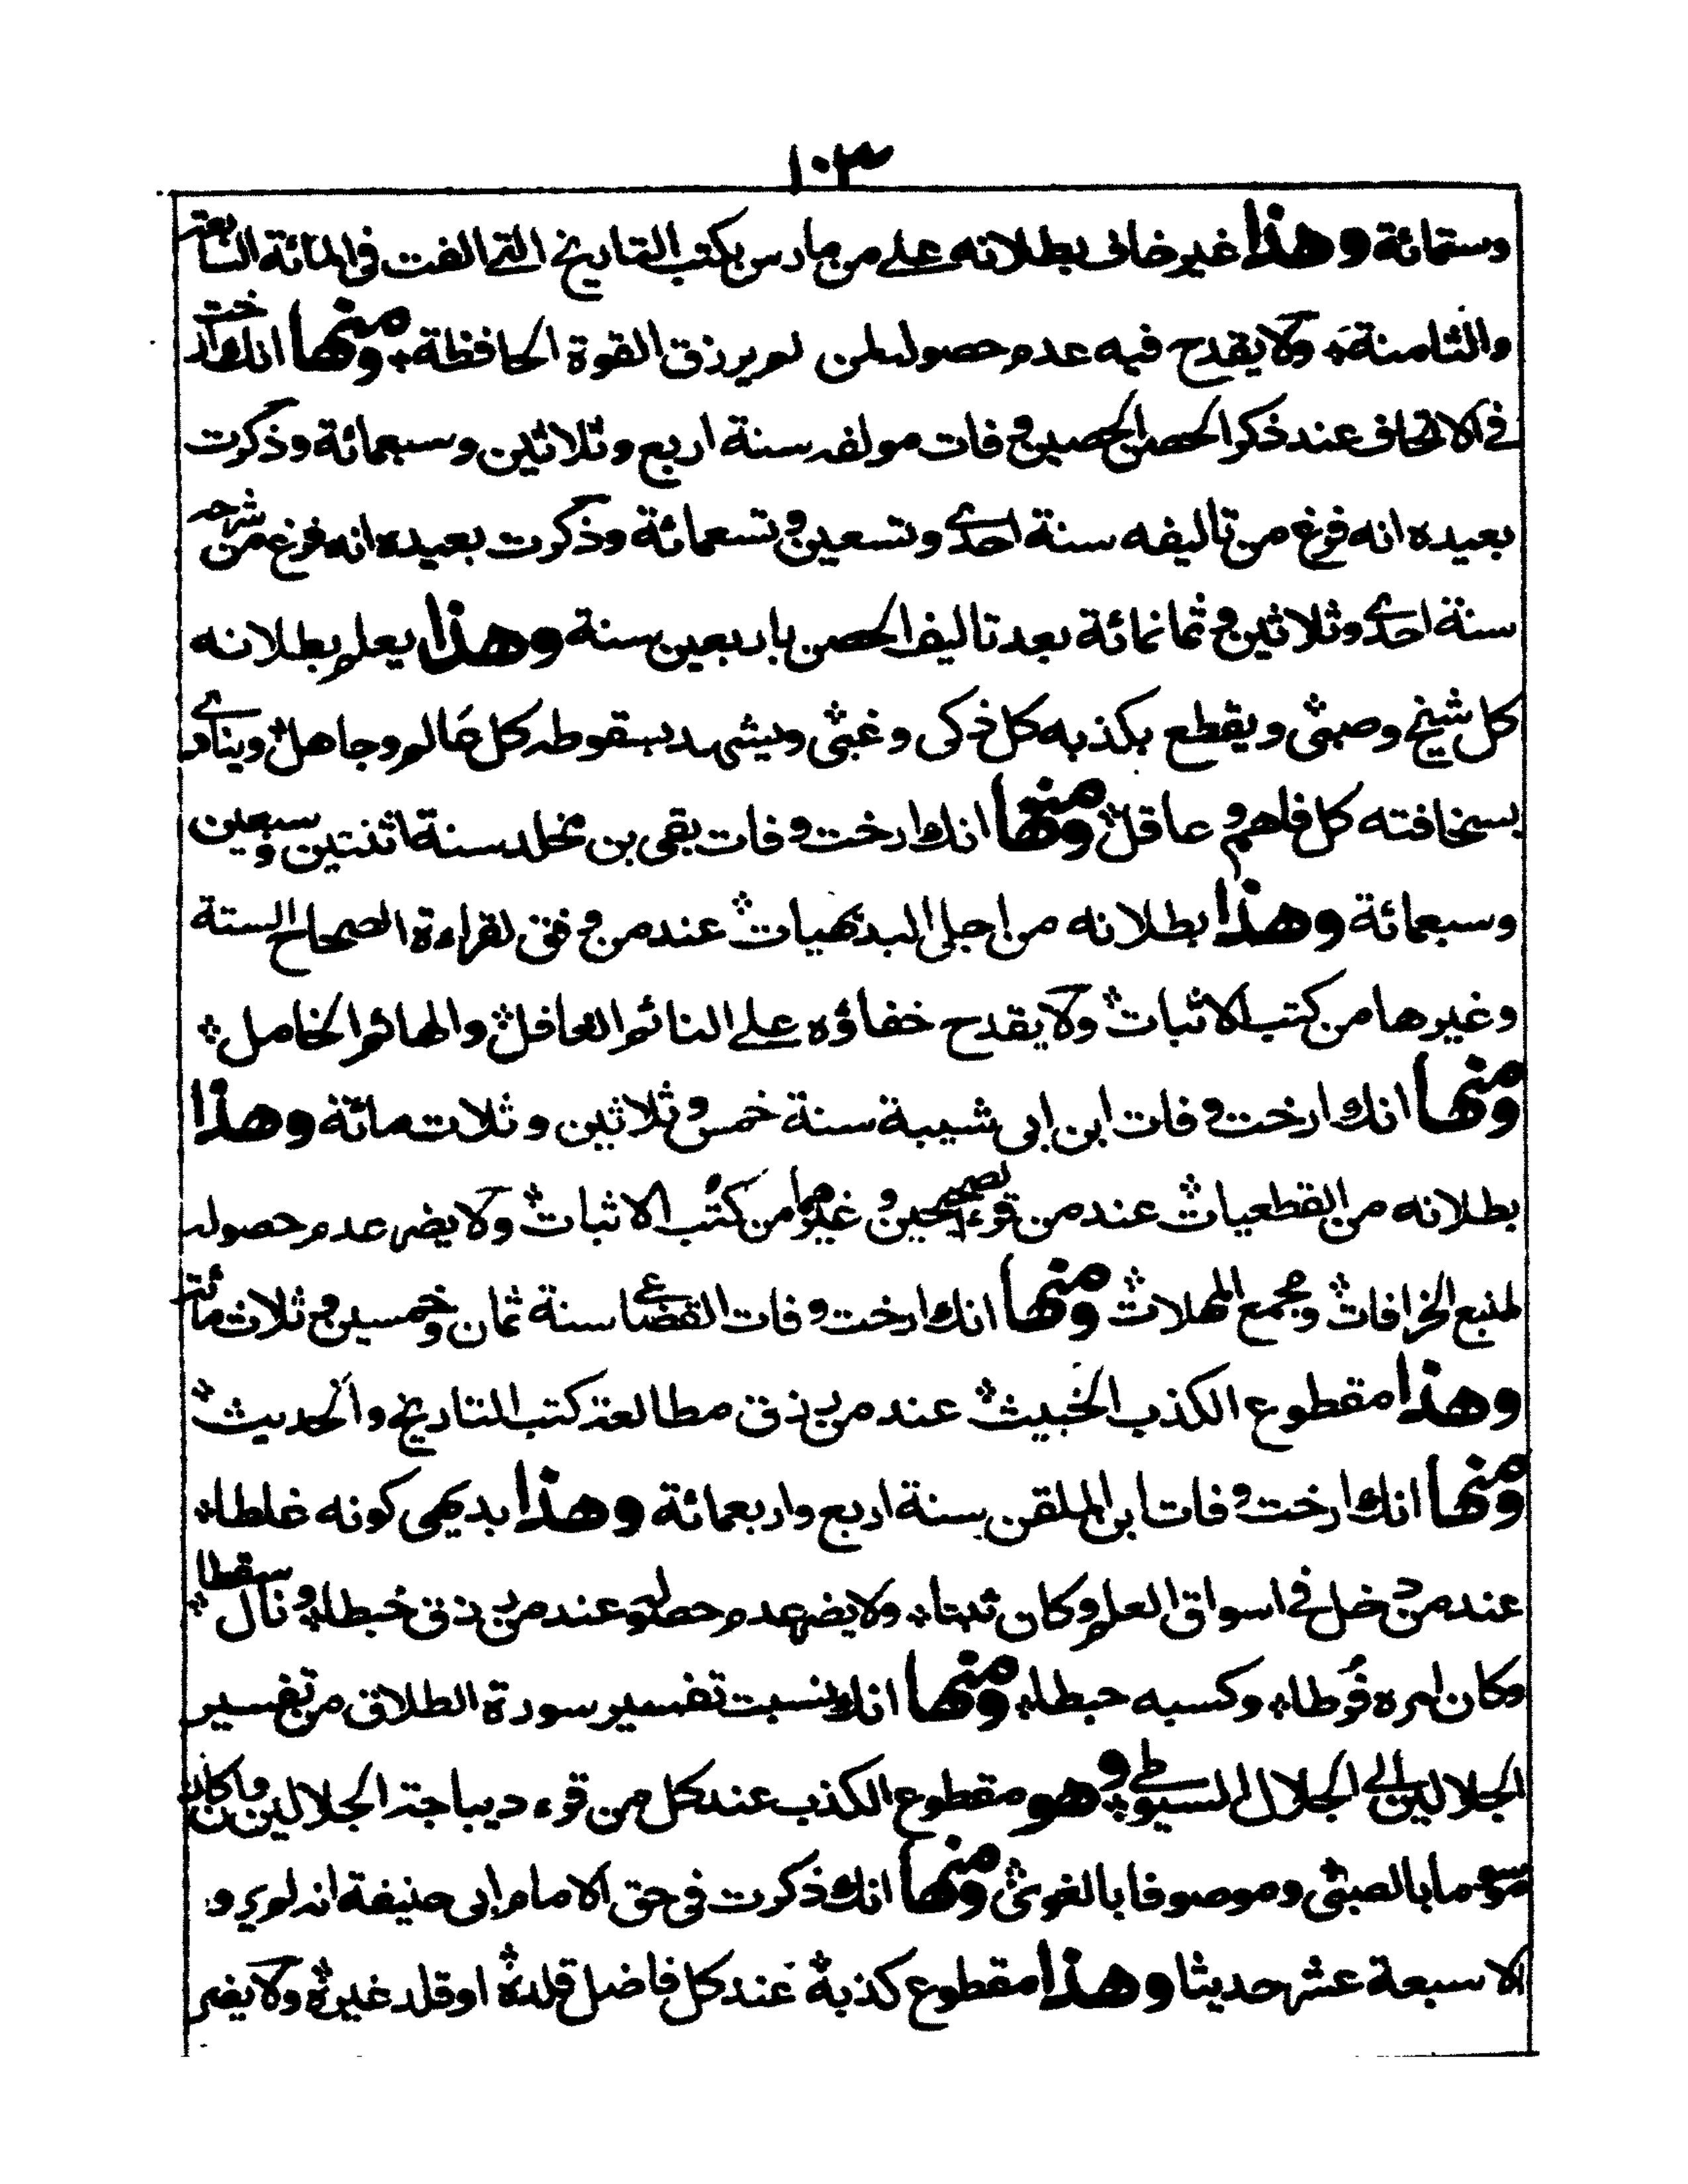 ١٠٣
وستمائة وهذا غير خافى بطلانه على من مارس بكتب التاريخ التى الفت فى المائة السابعة
والثامنة ولا يقدح فيه عدم حصوله لمن لم يرزق القوة الحافظة ومنها انك ارخت
فى الاتحاف عند ذكر الحصن الحصين وفات مولفه سنة اربع وثلاثين وسبعمائة وذكرت
بعيده انه فرغ من تاليفه سنة احدى وتسعين وتسعمائة وذكرت بعيده انه فرغ من شرحه
سنة احدى وثلاثين وثمانمائة بعد تاليف الحصن باربعين سنة وهذا يعلم بطلانه
كل شيخ وصبى ويقطع بكذبه كل ذكى وغبى ويشهد بسقوطه كل عالم وجاهل وينادى
بسخافته كل فاهم وعاقل ومنها انك ارخت وفات بقى بن مخلد سنة اثنتين وسبعين
وسبعمائة وهذا بطلانه من اجلى البديهيات عند من وفق لقراءة الصحاح الستة
وغيرها من كتب الاثبات ولا يقدح خفاؤه على النائم الغافل والهائم الخامل
ومنها انك ارخت وفات ابن ابى شيبة سنة خمس وثلاثين وثلاث مائة وهذا
بطلانه من القطعيات عند من قرء الصحيحين وغيرهما من كتب الاثبات ولا يضر عدم حصوله
لمنبع الخرافات ومجمع المهلات ومنها انك ارخت وفات القضاعى سنة ثمان وخمسين وثلاث مائة
وهذا مقطوع الكذب الخبيث عند من رزق مطالعة كتب التاريخ والحديث
ومنها انك ارخت وفات ابن الملقن سنة اربع واربعمائة وهذا بديهى كونه غلطا
عند من دخل فى اسواق العلم وكان ثبتا ولا يضر عدم حصوله عند من رزق خبطا ونال سقطا
وكان امره فرطا وكسبه حبطا ومنها انك نسبت تفسير سورة الطلاق من تفسير
الجلالين الى الجلال السيوطى وهو مقطوع الكذب عند كل من قرء ديباجة الجلالين وان كان
موسوما بالصبى وموصوفا بالغوى ومنها انك ذكرت فى حق الامام ابى حنيفة انه لم يرو
الا سبعة عشر حديثا وهذا مقطوع كذبه عند كل فاضل قلده او قلد غيره ولا يضر